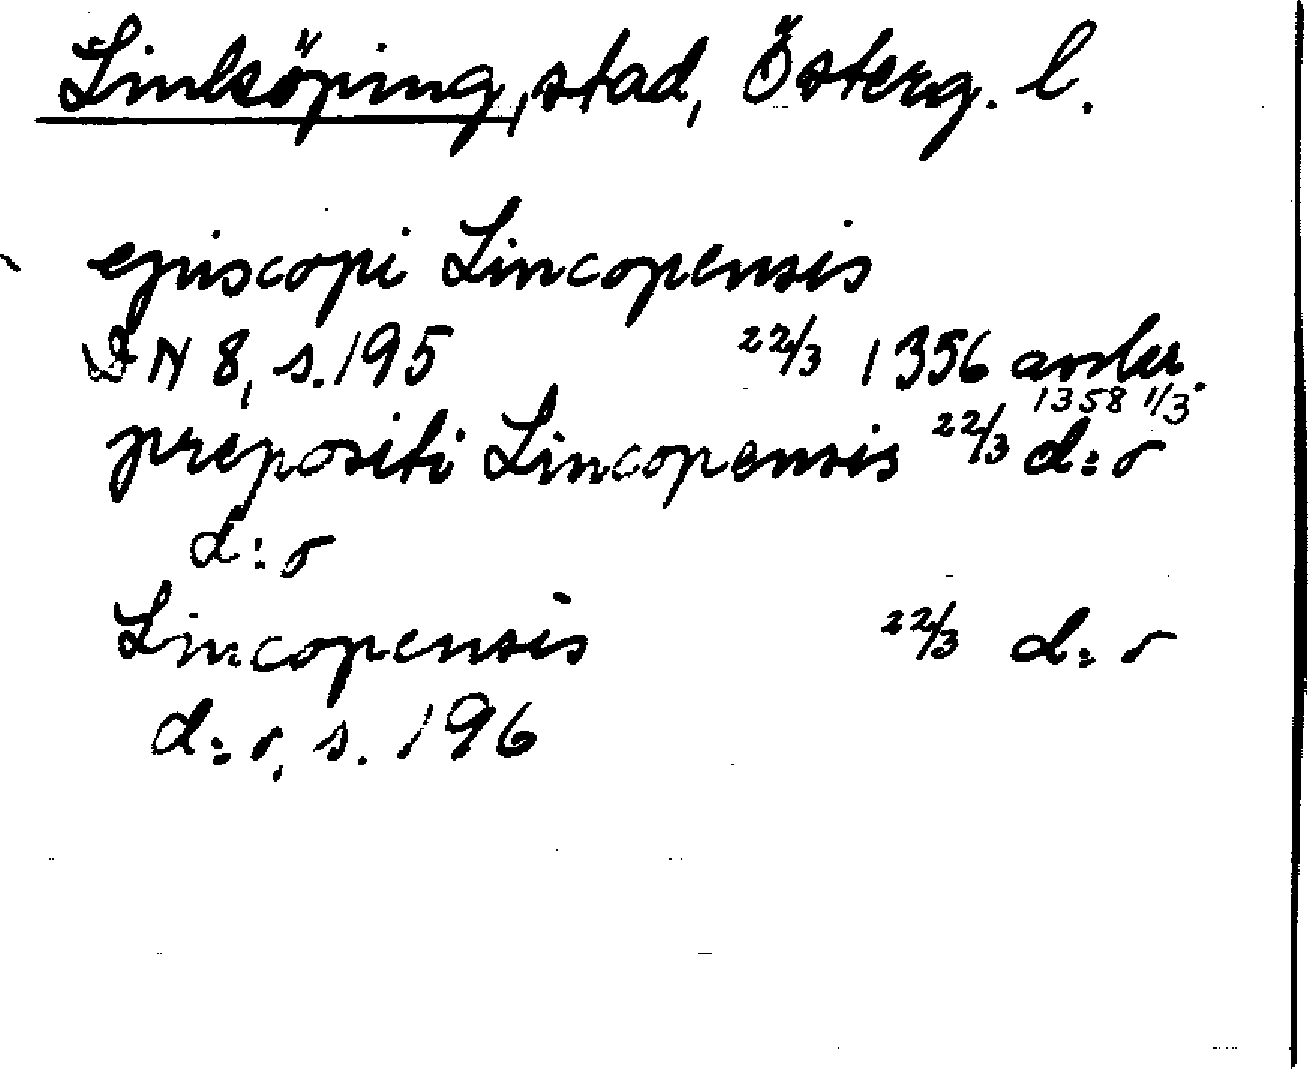 Linköping, stad, Österg. l.
episcopi Lincopensis
DN 8, s. 195 22/3 1356 avskr.
1358 1/3
prepositi Lincopensis 22/3 d:o
d:o
Lincopensis 22/3 d:o
d:o, s. 196